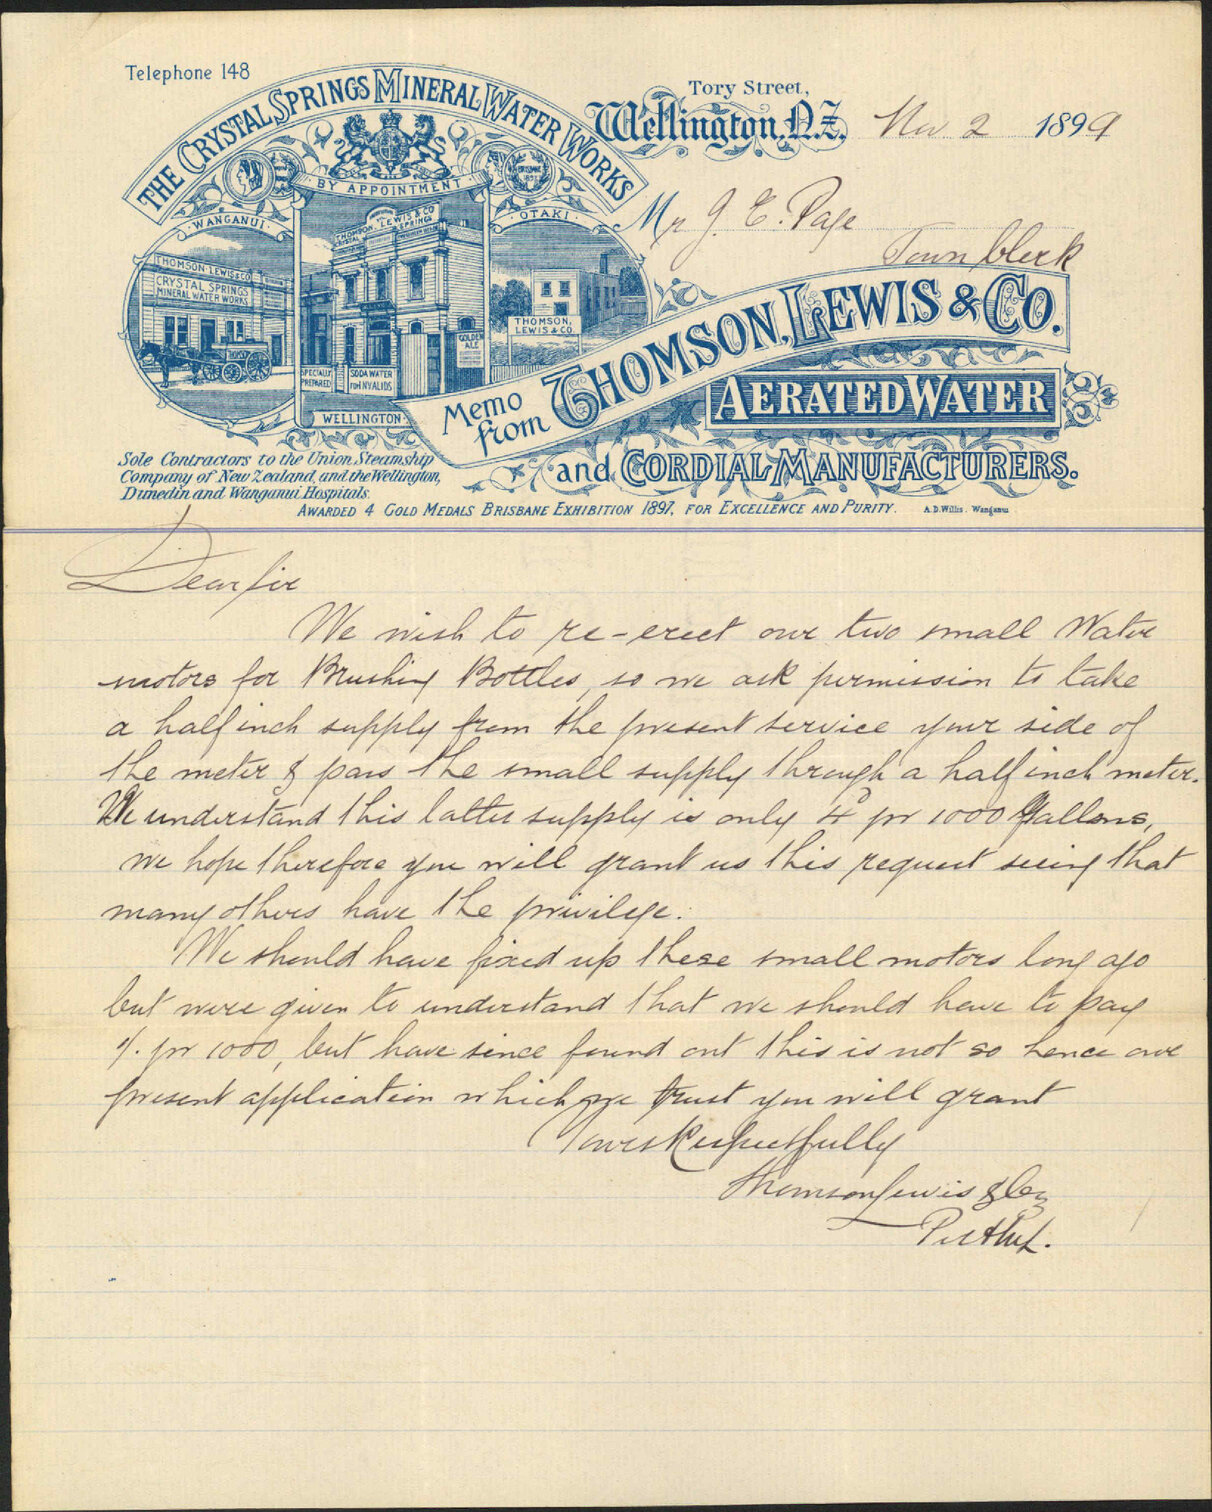 Telephone 148
THE CRYSTAL SPRINGS MINERAL WATER WORKS
Tory Street,
Wellington, N.Z. Nov 2 1899
BY APPOINTMENT
BRISBANE 1897
WANGANUI
OTAKI
Mr J. E. Page
Town Clerk
THOMSON. LEWIS & CO
CRYSTAL SPRINGS
MINERAL WATER WORKS
THOMSON. LEWIS & CO
CRYSTAL SPRINGS
THOMSON,
LEWIS & CO.
GOLDEN
ALE
SPECIALLY
PREPARED
SODA WATER
FOR INVALIDS
WELLINGTON
Memo from THOMSON, LEWIS & CO.
AERATED WATER
and CORDIAL MANUFACTURERS.
Sole Contractors to the Union Steamship
Company of New Zealand, and the Wellington,
Dunedin and Wanganui Hospitals.
AWARDED 4 GOLD MEDALS BRISBANE EXHIBITION 1897, FOR EXCELLENCE AND PURITY. A.D. Willis. Wanganui
Dear Sir
We wish to re-erect our two small Water
motors for Brushing Bottles, so we ask permission to take
a half inch supply from the present service your side of
the meter & pass the small supply through a half inch meter.
We understand this latter supply is only 4d pr 1000 Gallons,
we hope therefore you will grant us this request seeing that
many others have the privilege.
We should have fixed up these small motors long ago
but were given to understand that we should have to pay
1/. pr 1000, but have since found out this is not so hence our
present application which we trust you will grant
Yours Respectfully
Thomson Lewis & Co